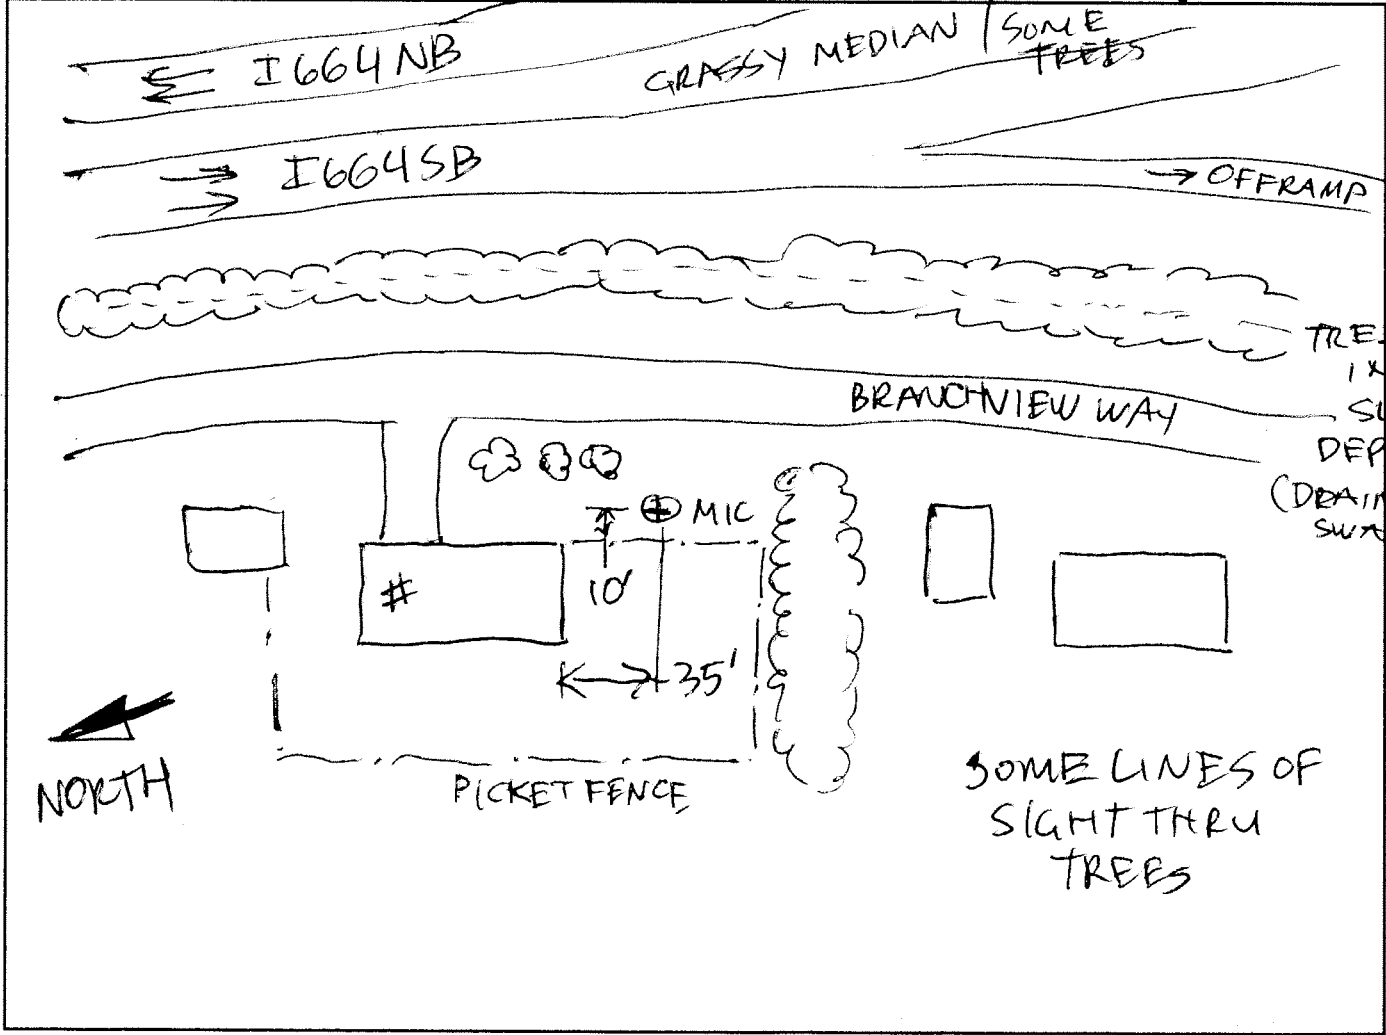 I664 NB
GRASSY MEDIAN / SOME
TREES
I664 SB
→ OFFRAMP
TRE
IN
SU
DEP
(DRAIN
SWA
BRANCHVIEW WAY
MIC
10'
#
35'
NORTH
PICKET FENCE
SOME LINES OF
SIGHT THRU
TREES